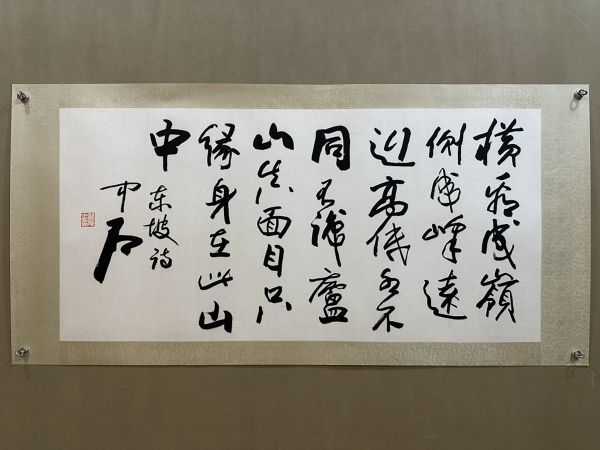 横看成嶺
側成峰遠
近高低各不
同不識廬
山真面目只
緣身在此山
中
東坡詩
中石